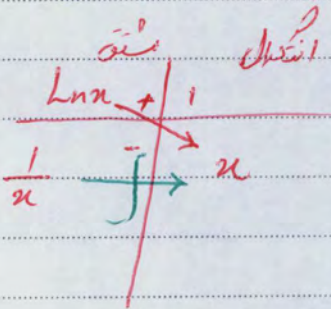 مشتق انتگرال
Lnx + 1
1/x - ∫ x